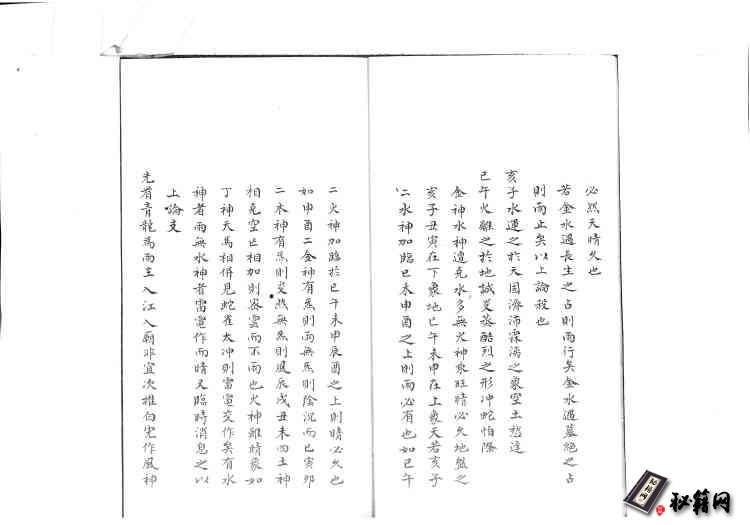 必然天晴久也
若金水遇長生之占則雨行矣金水遇墓絕之占
則雨止矣以上論發也
亥子水運之於天因濟沛霖湯之象空土愁逢
巳午火離之於地誠炎蒸酷烈之形冲蛇怕際
金神水神遭克水多無火神象旺晴必久地盤之
亥子丑寅在下象地巳午未申在上象天若亥子
二水神加臨巳未申酉之上則雨必有也如巳午
二火神加臨於巳午未申辰酉之上則晴必久也
如申酉二金神有炁則雨無炁則陰沉而已寅卯
二木神有炁則变然無炁則風辰戌丑未四土神
相克空亡相加則密雲而不雨也火神離晴象如
丁神天馬相併見蛇雀太冲則雷電交作矣有水
神者雨無水神者雷電作而晴又臨時消息之以
上論支
先看青龍為雨主入江入廟非宜次推白虎作風神
秘籍网